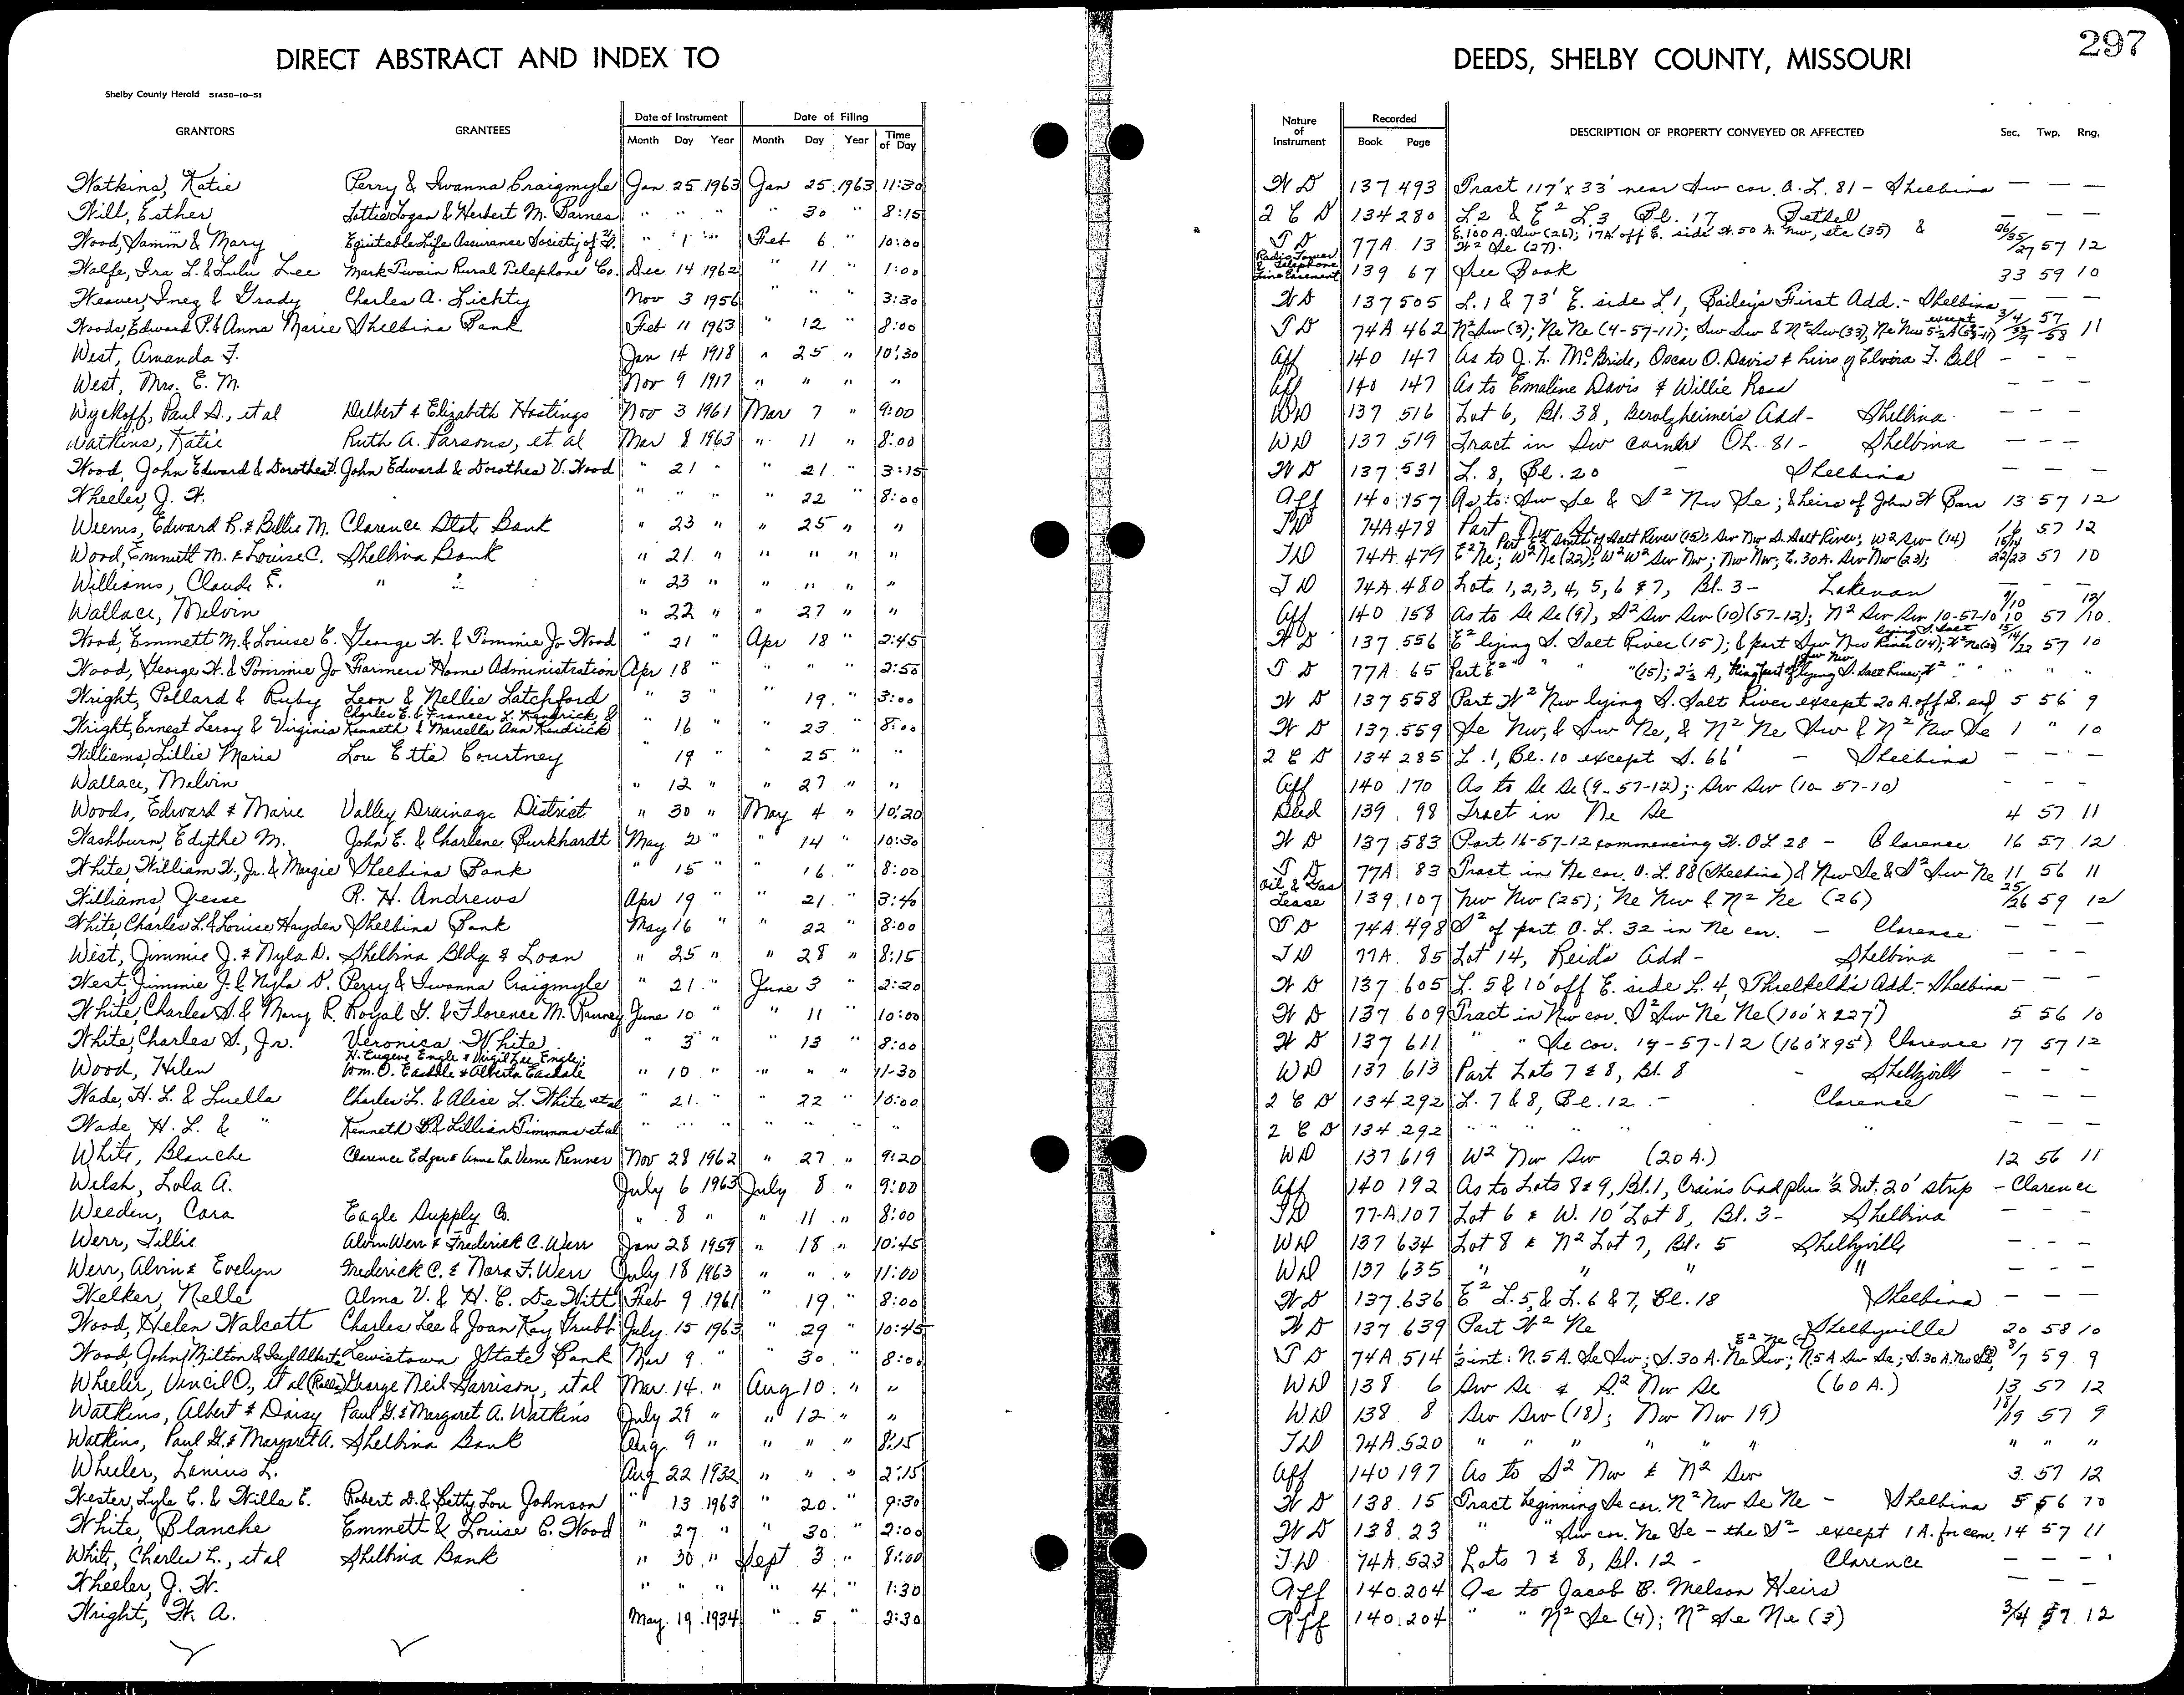 DIRECT ABSTRACT AND INDEX TO DEEDS, SHELBY COUNTY, MISSOURI 297
Shelby County Herald 51458-10-51
GRANTORS GRANTEES Date of Instrument Month Day Year Date of Filing Month Day Year Time of Day Nature of Instrument Recorded Book Page DESCRIPTION OF PROPERTY CONVEYED OR AFFECTED Sec. Twp. Rng.
Watkins, Katie Perry & Iwanna Craigmyle Jan 25 1963 Jan 25 1963 11:30 W D 137 493 Tract 117' x 33' near Sw cor. O. L. 81 - Shelbina — — —
Will, Esther Lottie Logan & Herbert M. Barnes " " " " 30 " 8:15 2 C D 134 280 L. 2 & E² L. 3 Bl. 17 Bethel — — —
Wood, & Mary Equitable Life Assurance Society of U.S. " 1 " Feb 6 " 10:00 T D 77A 13 E. 100 A. Sw (26); 17A off E. side W. 50 A. Nw, etc (35) & W² Se (27). 26/35/27 57 12
Wolfe, Ira L. & Lulu Lee Mark Twain Rural Telephone Co. Dec 14 1962 " 11 " 1:00 Radio Tower & Telephone Line Easement 139 67 See Book 33 59 10
Weaver, Inez & Grady Charles A. Lichty Nov 3 1956 " " " 3:30 W D 137 505 L. 1 & 73' E. side L 1, Bailey's First Add. - Shelbina — — —
Woods, Edward P. & Anna Marie Shelbina Bank Feb 11 1963 " 12 " 8:00 T D 74A 462 N² Sw (3); Ne Ne (4-57-11); Sw Sw & N² Sw (33), Ne Nw except 5½ A 3/4 57 58 11
West, Amanda F. Jan 14 1918 " 25 " 10:30 Aff 140 147 As to J. L. McBride, Oscar O. Davis & heirs of Elvira F. Bell - - -
West, Mrs. E. M. Nov 9 1917 " " " " Aff 140 147 As to Emaline Davis & Willie Ross - - -
Wyckoff, Paul S., et al Delbert & Elizabeth Hastings Nov 3 1961 Mar 7 " 9:00 WD 137 516 Lot 6, Bl. 38, Berolzheimer's Add- Shelbina - - -
Watkins, Katie Ruth A. Parsons, et al Mar 8 1963 " 11 " 8:00 WD 137 519 Tract in Sw corner OL. 81 - Shelbina - - -
Wood, John Edward & Dorothea V. John Edward & Dorothea V. Wood " 21 " " 21 " 3:15 W D 137 531 L. 8, Bl. 20 - Shelbina — — —
Wheeler, J. W. " " " " 22 " 8:00 Aff 140 157 As to: Sw Se & S² Nw Se; & heirs of John W Barr 13 57 12
Weems, Edward R. & Billie M. Clarence State Bank " 23 " " 25 " " TD 74A 478 Part Nw Se 16 57 12
Wood, Emmett M. & Louise C. Shelbina Bank " 21 " " " " " TD 74A 479 Part E² South of Salt River (15); Sw Nw S. Salt River; W² Sw (14) E² Ne; W² Ne (22); W² W² Sw Nw; Nw Nw; E. 30A. Sw Nw (23); 15/14 22/23 57 10
Williams, Claude E. " " " 23 " " " " " TD 74A 480 Lots 1, 2, 3, 4, 5, 6 & 7, Bl. 3 - Lakenan — — —
Wallace, Melvin " 22 " " 27 " " Aff 140 158 As to Se Se (9), S² Sw Sw (10) (57-12); N² Sw Sw 10-57-10 9/10 10 57 12/10
Wood, Emmett M. & Louise C. George W. & Tommie Jo Wood " 21 " Apr 18 " 2:45 W D 137 556 E² lying S. Salt River (15); & part Sw Nw lying S. Salt River (14); W² Ne (22) 15/14/22 57 10
Wood, George W. & Tommie Jo Farmers Home Administration Apr 18 " " " " 2:50 T D 77A 65 Part E² " " " " (15); 2½ A, being part of Sw Nw lying S. Salt River; W² " " " " "
Wright, Pollard & Ruby Leon & Nellie Latchford " 3 " " 19 " 3:00 W D 137 558 Part W² Nw lying S. Salt River except 20 A. off S. end 5 56 9
Wright, Ernest Leroy & Virginia Charles E. & Frances L. Kendrick & Kenneth & Marsella Ann Kendrick " 16 " " 23 " 8:00 W D 137 559 Se Nw, & Sw Ne, & N² Ne Sw & N² Nw Se 1 " 10
Williams, Lillie Marie Lou Etta Courtney " 19 " " 25 " " 2 C D 134 285 L. 1, Bl. 10 except S. 66' - Shelbina — — —
Wallace, Melvin " 12 " " 27 " " Aff 140 170 As to Se Se (9-57-12); Sw Sw (10-57-10) - - -
Woods, Edward & Marie Valley Drainage District " 30 " May 4 " 10:20 Deed 139 98 Tract in Ne Se 4 57 11
Washburn, Edythe M. John E. & Charlene Burkhardt May 2 " " 14 " 10:30 W D 137 583 Part 16-57-12 commencing W. OL 28 - Clarence 16 57 12
White, William W., Jr. & Margie Shelbina Bank " 15 " " 16 " 8:00 T D 77A 83 Tract in Ne cor. O. L. 88 (Shelbina) & Nw Se & S² Sw Ne 11 56 11
Williams, Jesse R. H. Andrews Apr 19 " " 21 " 3:40 Oil & Gas Lease 139 107 Nw Nw (25); Ne Nw & N² Ne (26) 25/26 59 12
White, Charles L. & Louise Hayden Shelbina Bank May 16 " " 22 " 8:00 T D 74A 498 S² of part O. L. 32 in Ne cor. - Clarence — — —
West, Jimmie J. & Nyla D. Shelbina Bldg & Loan " 25 " " 28 " 8:15 TD 77A 85 Lot 14, Reid's Add - Shelbina - - -
West, Jimmie J. & Nyla D. Perry & Iwanna Craigmyle " 21 " June 3 " 2:20 W D 137 605 L. 5 & 10' off E. side L. 4, Threlkeld's Add. - Shelbina — — —
White, Charles S. & Mary R. Royal G. & Florence M. Ranney June 10 " " 11 " 10:00 W D 137 609 Tract in Nw cor. S² Sw Ne Ne (100' x 227') 5 56 10
White, Charles S., Jr. Veronica White " 3 " " 13 " 8:00 W D 137 611 " " Se cor. 17-57-12 (160' x 95') Clarence 17 57 12
Wood, Helen H. Eugene Engle & Virgil Lee Engle; Wm. O. Easdale & Alberta Easdale " 10 " " " " 11-30 WD 137 613 Part Lots 7 & 8, Bl. 8 - Shelbyville - - -
Wade, H. L. & Luella Charles L. & Alice L. White et al " 21 " " 22 " 10:00 2 C D 134 292 L. 7 & 8, Bl. 12 - Clarence — — —
Wade, H. L. & " Kenneth D. & Lillian Timmons et al " " " " " " " 2 C D 134 292 " " " " " " — — —
White, Blanche Clarence Edgar & Anne La Verne Renner Nov 28 1962 " 27 " 9:20 WD 137 619 W² Nw Sw (20 A.) 12 56 11
Welsh, Lola A. July 6 1963 July 8 " 9:00 Aff 140 192 As to Lots 8 & 9, Bl. 1, Crain's Add plus ½ Int. 20' strip - Clarence
Weeden, Cora Eagle Supply Co. " 8 " " 11 " 8:00 TD 77-A 107 Lot 6 & W. 10' Lot 8, Bl. 3 - Shelbina - - -
Werr, Tillie Alvin Werr & Frederick C. Werr Jan 28 1959 " 18 " 10:45 WD 137 634 Lot 8 & N² Lot 7, Bl. 5 Shelbyville - - -
Werr, Alvin & Evelyn Frederick C. & Nora F. Werr July 18 1963 " " " 11:00 WD 137 635 " " " " - - -
Welker, Nelle Alma V. & H. C. De Witt Feb 9 1961 " 19 " 8:00 W D 137 636 E² L. 5, & L. 6 & 7, Bl. 18 Shelbina — — —
Wood, Helen Walcott Charles Lee & Joan Kay Grubb July 15 1963 " 29 " 10:45 W D 137 639 Part W² Ne Shelbyville 20 58 10
Wood, John Milton & Alberta Lewistown State Bank Mar 9 " " 30 " 8:00 T D 74A 514 ½ int: N. 5 A. Se Sw; S. 30 A. Ne Sw; N. 5 A Sw Se; S. 30 A. Nw Se; E² Ne 8/7 59 9
Wheeler, Vencil O., et al George Neil Garrison, et al Mar. 14 " Aug 10 " " WD 138 6 Sw Se & S² Nw Se (60 A.) 13 57 12
Watkins, Albert & Daisy Paul G. & Margaret A. Watkins July 29 " " 12 " " WD 138 8 Sw Sw (18); Nw Nw 19) 18/19 57 9
Watkins, Paul G. & Margaret A. Shelbina Bank Aug. 9 " " " " 8:15 TD 74A 520 " " " " " " " " "
Wheeler, Lenius L. Aug 22 1932 " " " 2:15 Aff 140 197 As to S² Nw & N² Sw 3 57 12
Wester, Lyle C. & Willa E. Robert D. & Betty Lou Johnson " 13 1963 " 20 " 9:30 W D 138 15 Tract beginning Se cor. N² Nw Se Ne - Shelbina 5 56 10
White, Blanche Emmett & Louise C. Wood " 27 " " 30 " 2:00 W D 138 23 " " Sw cor. Ne Se - the S² - except 1 A. for cem. 14 57 11
White, Charles L., et al Shelbina Bank " 30 " Sept 3 " 8:00 TD 74A 523 Lots 7 & 8, Bl. 12 - Clarence - - -
Wheeler, J. W. " " " " 4 " 1:30 Aff 140 204 As to Jacob B. Melson Heirs — — —
Wright, W. A. May 19 1934 " 5 " 2:30 Aff 140 204 " " N² Se (4); N² Se Ne (3) 3/4 57 12